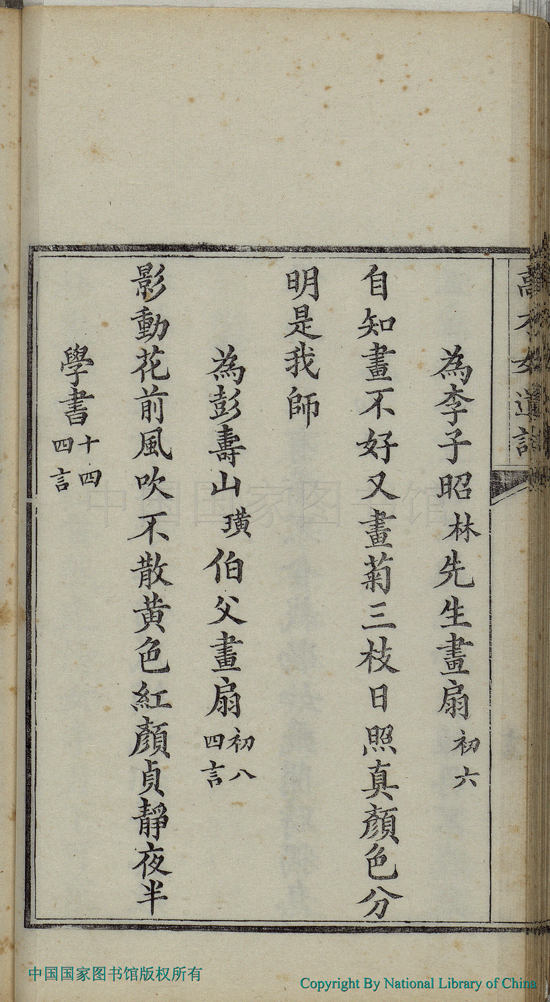 為李子昭林先生畫扇初六
自知畫不好又畫菊三枝日照真顏色分
明是我師
為彭壽山璜伯父畫扇初八四言
影動花前風吹不散黃色紅顏貞靜夜半
學書十四四言
中国国家图书馆
中国国家图书馆版权所有
Copyright By National Library of China